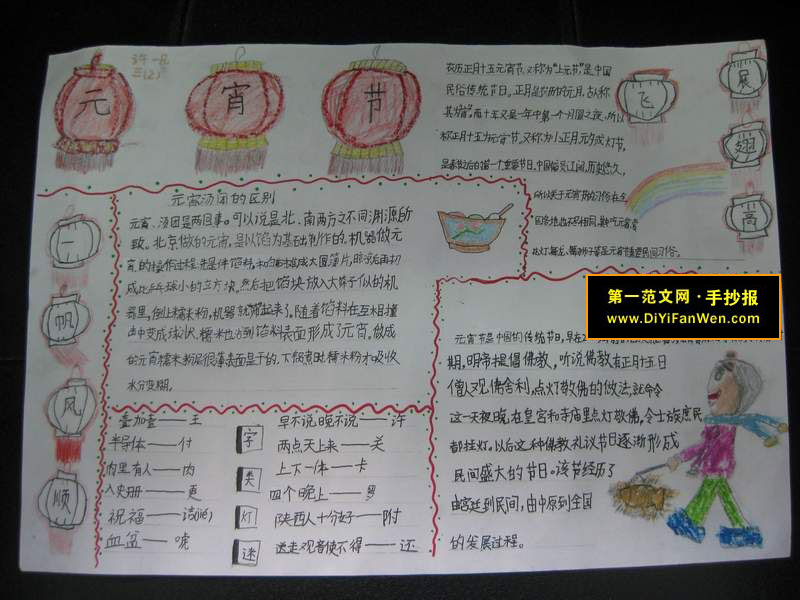 许一凡
三(2)
元 宵 节
农历正月十五元宵节,又称为"上元节"是中国
民俗传统节日。正月是农历的元月,古人称
其为"宵",而十五又是一年中第一个月圆之夜,所以
称正月十五为元宵节,又称为小正月、元夕或灯节,
是春节之后的第一个重要节日。中国幅员辽阔,历史悠久,
所以关于元宵节的习俗在全
国各地也不尽相同,其中吃元宵
飞
展
翅
高
元宵汤圆的区别
元宵、汤团是两回事。可以说是北、南两方之不同渊源所
致。北京做的元宵,是以馅为基础制作的。机器做元
宵的操作过程
成比乒乓球小的立方块。然后把馅块放入大筛子似的机
器里,倒上糯米粉,机器就"筛"起来了。随着馅料在互相撞
击中变成球状,糯米也沾到馅料表面形成了元宵。做成
的元宵糯米粉层很薄表面是干的。下锅煮时糯米粉才吸收
水分变糊。
一
帆
风
顺
第一范文网·手抄报
www.DiYiFanWen.com
元宵节是中国的传统节日,早在2
期,明帝提倡佛教,听说佛教有正月十五日
僧人观佛舍利,点灯敬佛的做法,就命令
这一天夜晚在皇宫和寺庙里点灯敬佛,令士族庶民
都挂灯。以后这种佛教礼议节日逐渐形成
民间盛大的节日。该节经历了
由宫廷到民间,由中原到全国
的发展过程。
字
类
灯
迷
叠加叠——王
半导体——付
内里有人——肉
祝福——诘
血盆——唬
早不说晚不说——许
两点天上来——关
上下一体——卡
四个晚上——罗
陕西人十分好——附
送走观音使不得——还